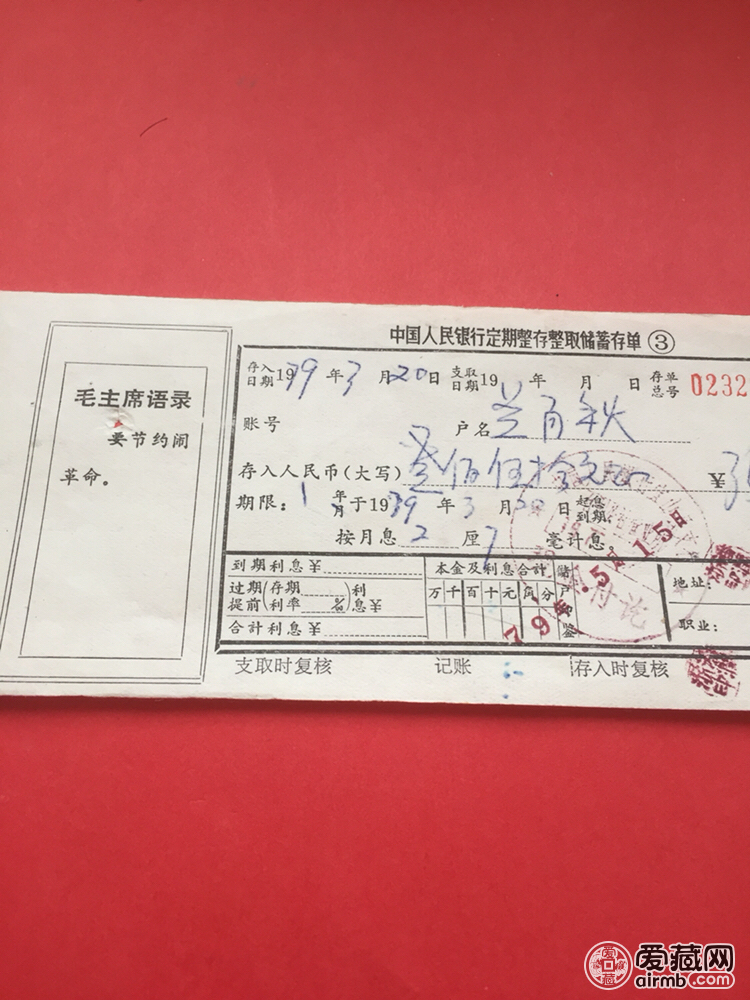 中国人民银行定期整存整取储蓄存单 ③
毛主席语录
要节约闹
革命。
存入日期 1979年3月20日 支取日期 19 年 月 日 存单总号 0232
账号 户名
存入人民币(大写) 叁佰伍拾元 ¥
期限: 1 年月 于1979年3月20日 起息到期:
按月息 2 厘 7 毫计息
到期利息¥
过期提前(存期利率 %)利息¥
合计利息¥
本金及利息合计
万千百十元角分
储户印鉴
地址:
职业:
支取时复核 记账 存入时复核
79.5.15
付讫
爱藏网
airmb.com